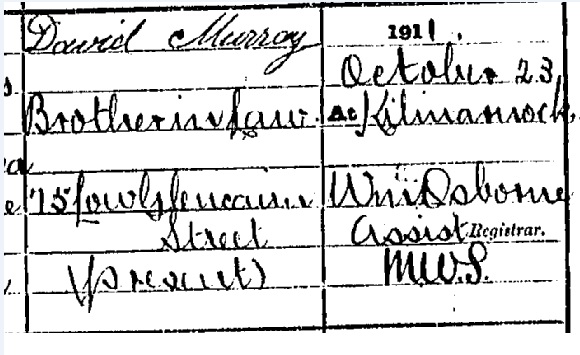 David Murray
1911.
October 23,
Brother in Law.
At Kilmarnock,
75 Low Glencairn
Street
(Present)
Wm Osborne
Assist Registrar.
M.W.S.